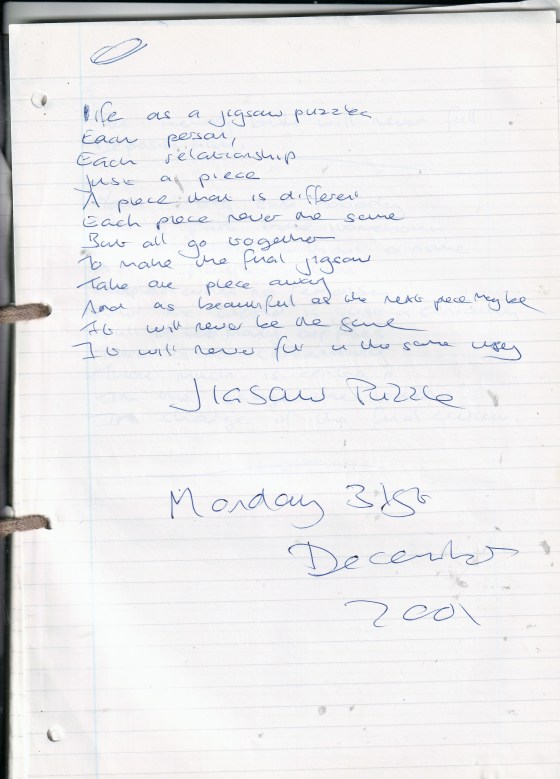 Life as a jigsaw puzzle
Each person,
Each relationship
Just a piece
A piece that is different
Each piece never the same
But all go together
To make the final jigsaw
Take one piece away
And as beautiful as the next piece may be
It will never be the same
It will never fit in the same way
Jigsaw Puzzle
Monday 31st
December
2001